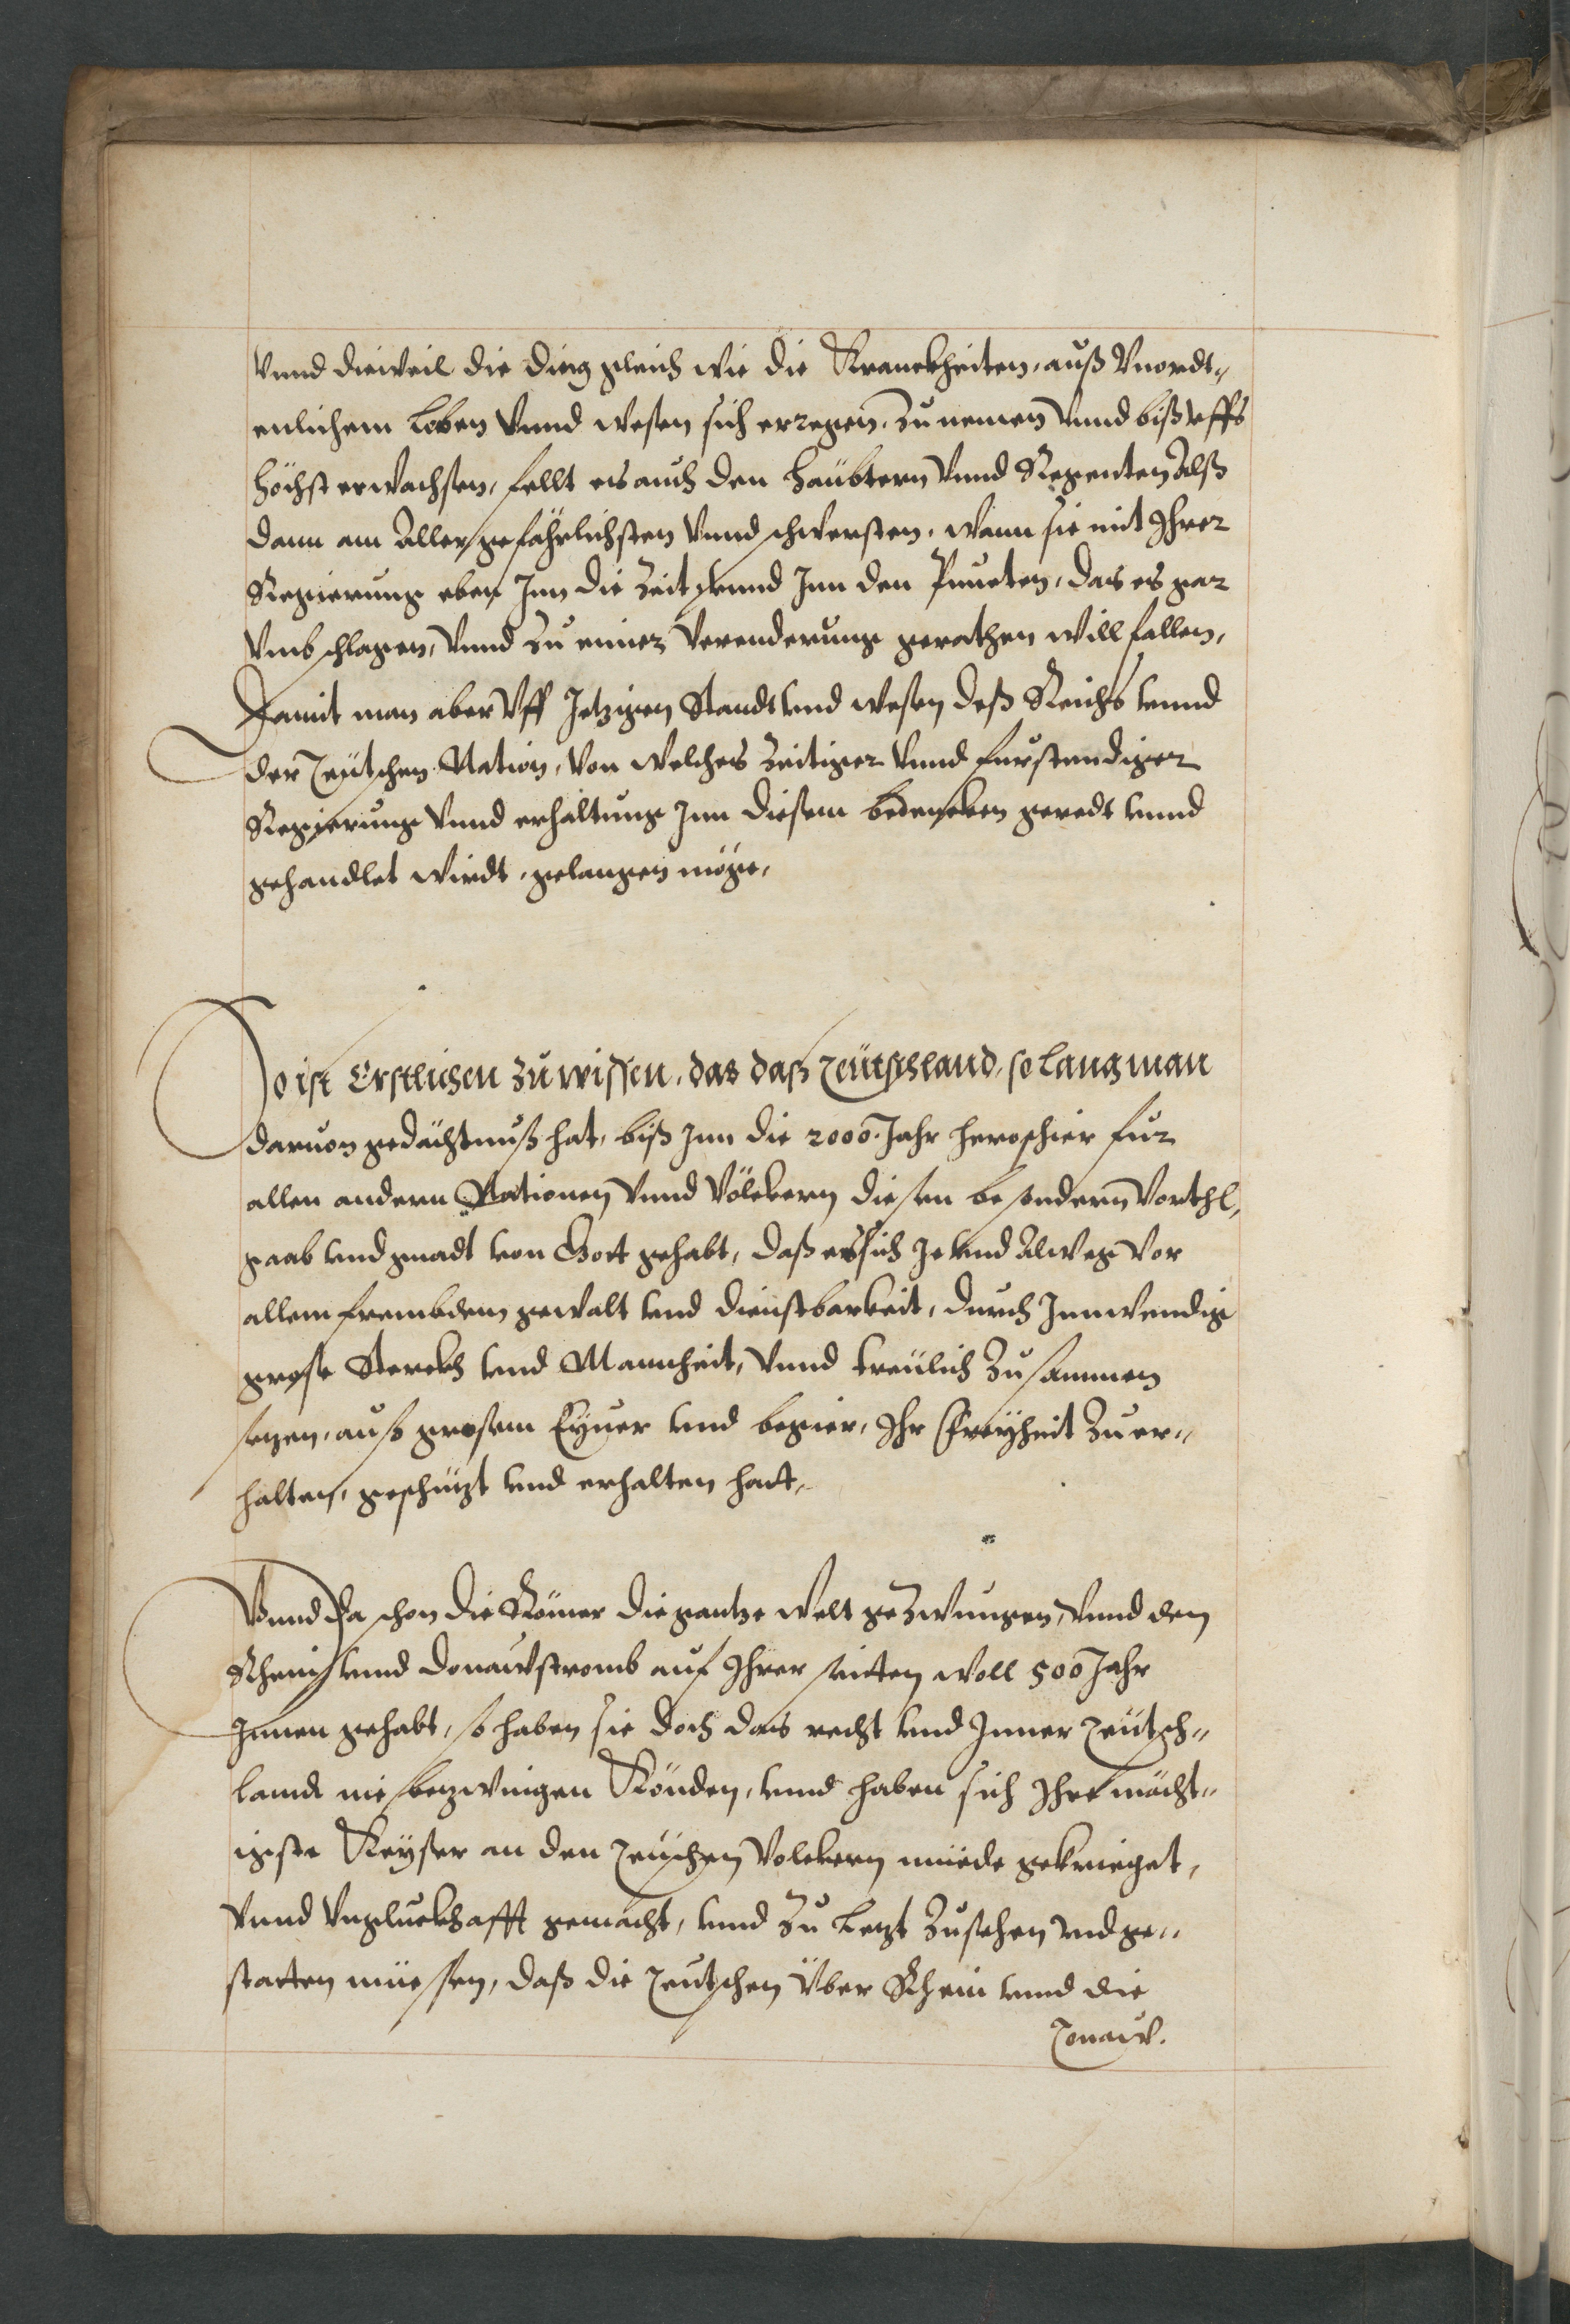 Vnnd dieweil die ding gleich wie die Kranckheiten, auß Vnordt-
enlichem Leben Vnnd wesen sich erregen, Zunemen Vnnd biß vffs
höchst erwachsen, fellt es auch den häubtern Vnnd Regenten Alß
dann am Aller gefährlichsten Vnnd schwersten, wann sie mit Ihrer
Regierung eben Inn die Zeit vnnd Inn den Puncten, das es gar
Vmbschlagen, Vnnd Zu einer Verenderung gerathen will fallen,
Damit man aber Vff Jetzigen Standt vnd wesen deß Reichs vnnd
der Teütschen Nation, Von welches Zeitiger Vnnd fürstendiger
Regierung Vnnd erhaltung Inn diesem bedencken geredt vnnd
gehandlet wirdt, gelangen möge,
So ist Erstlichen Zu wissen, das daß Teütschland, so lang man
daruon gedächtnuß hat, biß Inn die 2000. Jahr hero schier für
allen andern Nationen Vnnd Völckern diesen besondern Vorthl,
gaab vnd gnadt von Gott gehabt, daß es sich Je vnd Alweg Vor
allem frembdem gewalt vnd dienstbarkeit, durch Innwendig
grose Sterckh vnd Mannheit, Vnnd treülich Zusammen
setzen, auß grosem Eyuer vnd begier, Ihr Freyheit Zu er-
halten, geschützt vnd erhalten hatt,
Vnnd Da schon die Römer die gantze welt geZwungen, Vnnd den
Rhein vnnd Donawstromb auf Ihrer seitten woll 500 Jahr
Innen gehabt, so haben sie doch das recht vnd Inner Teütsch-
landt nie bezwingen Könden, vnnd haben sich Ihre mächt-
igste Keyser an den Teuschen Volckern müede gekrieget,
Vnnd Vngluckhafft gemacht, vnnd Zu Letzt Zusehen vnd ge-
statten müesen, daß die Teutschen Über Rhein vnnd die
Tonaw.